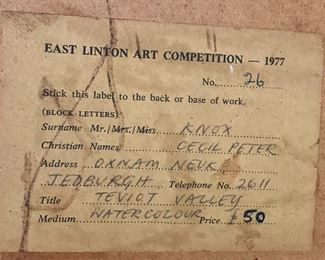 EAST LINTON ART COMPETITION — 1977
No. 26
Stick this label to the back or base of work.
(BLOCK LETTERS)
Surname Mr./Mrs./Miss KNOX
Christian Names CECIL PETER
Address OXNAM NEUK
JEDBURGH Telephone No. 2611
Title TEVIOT VALLEY
Medium WATERCOLOUR Price £50